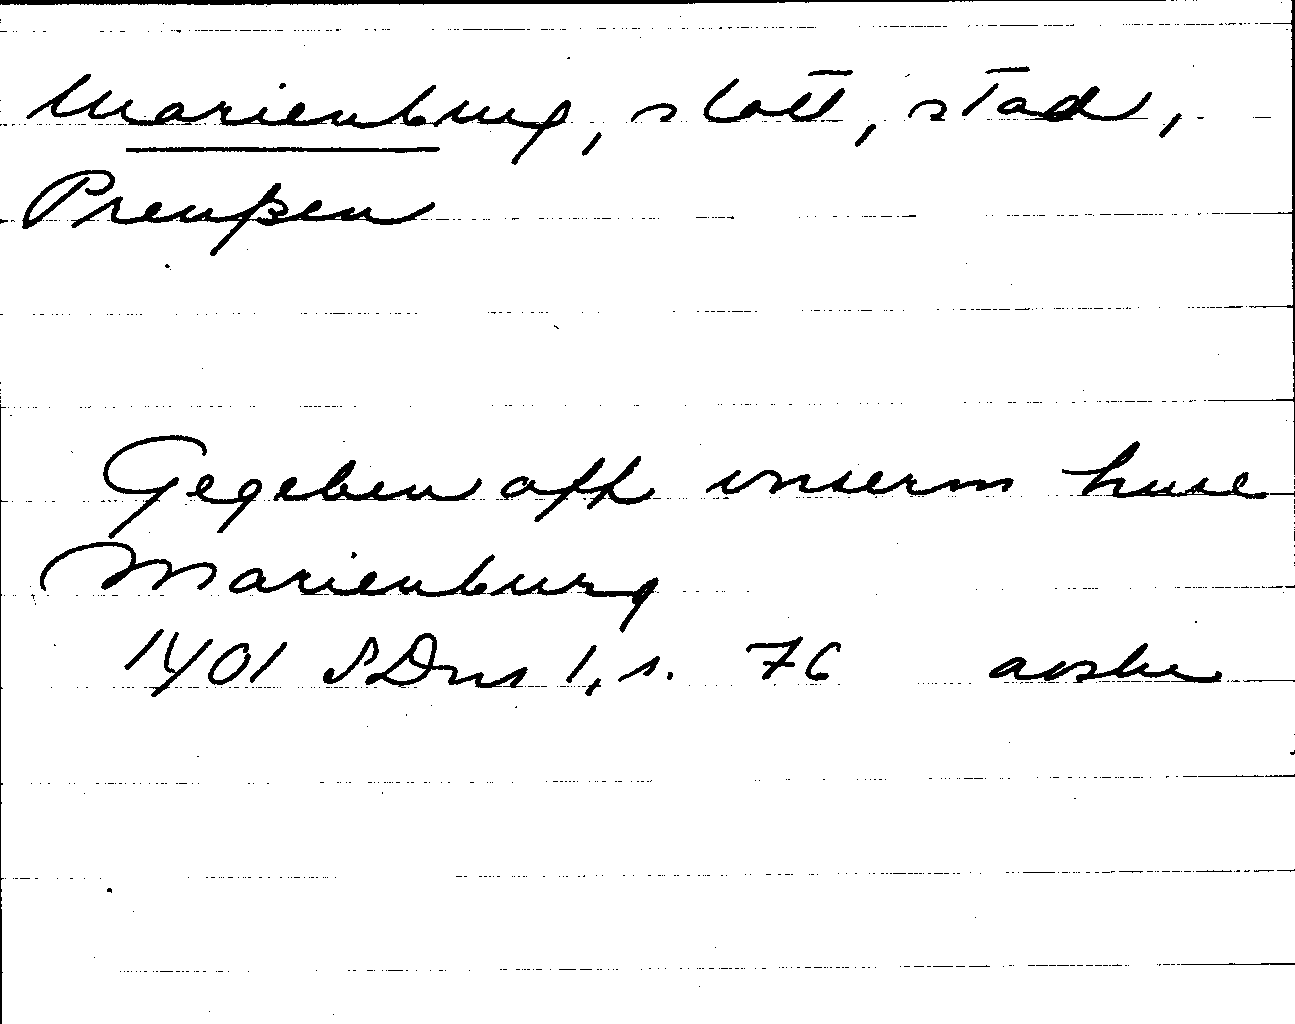 Marienburg, slott, stad,
Preußen
Gegeben off vnserm huse
Marienburg
1401 SDns 1, s. 76 avskr